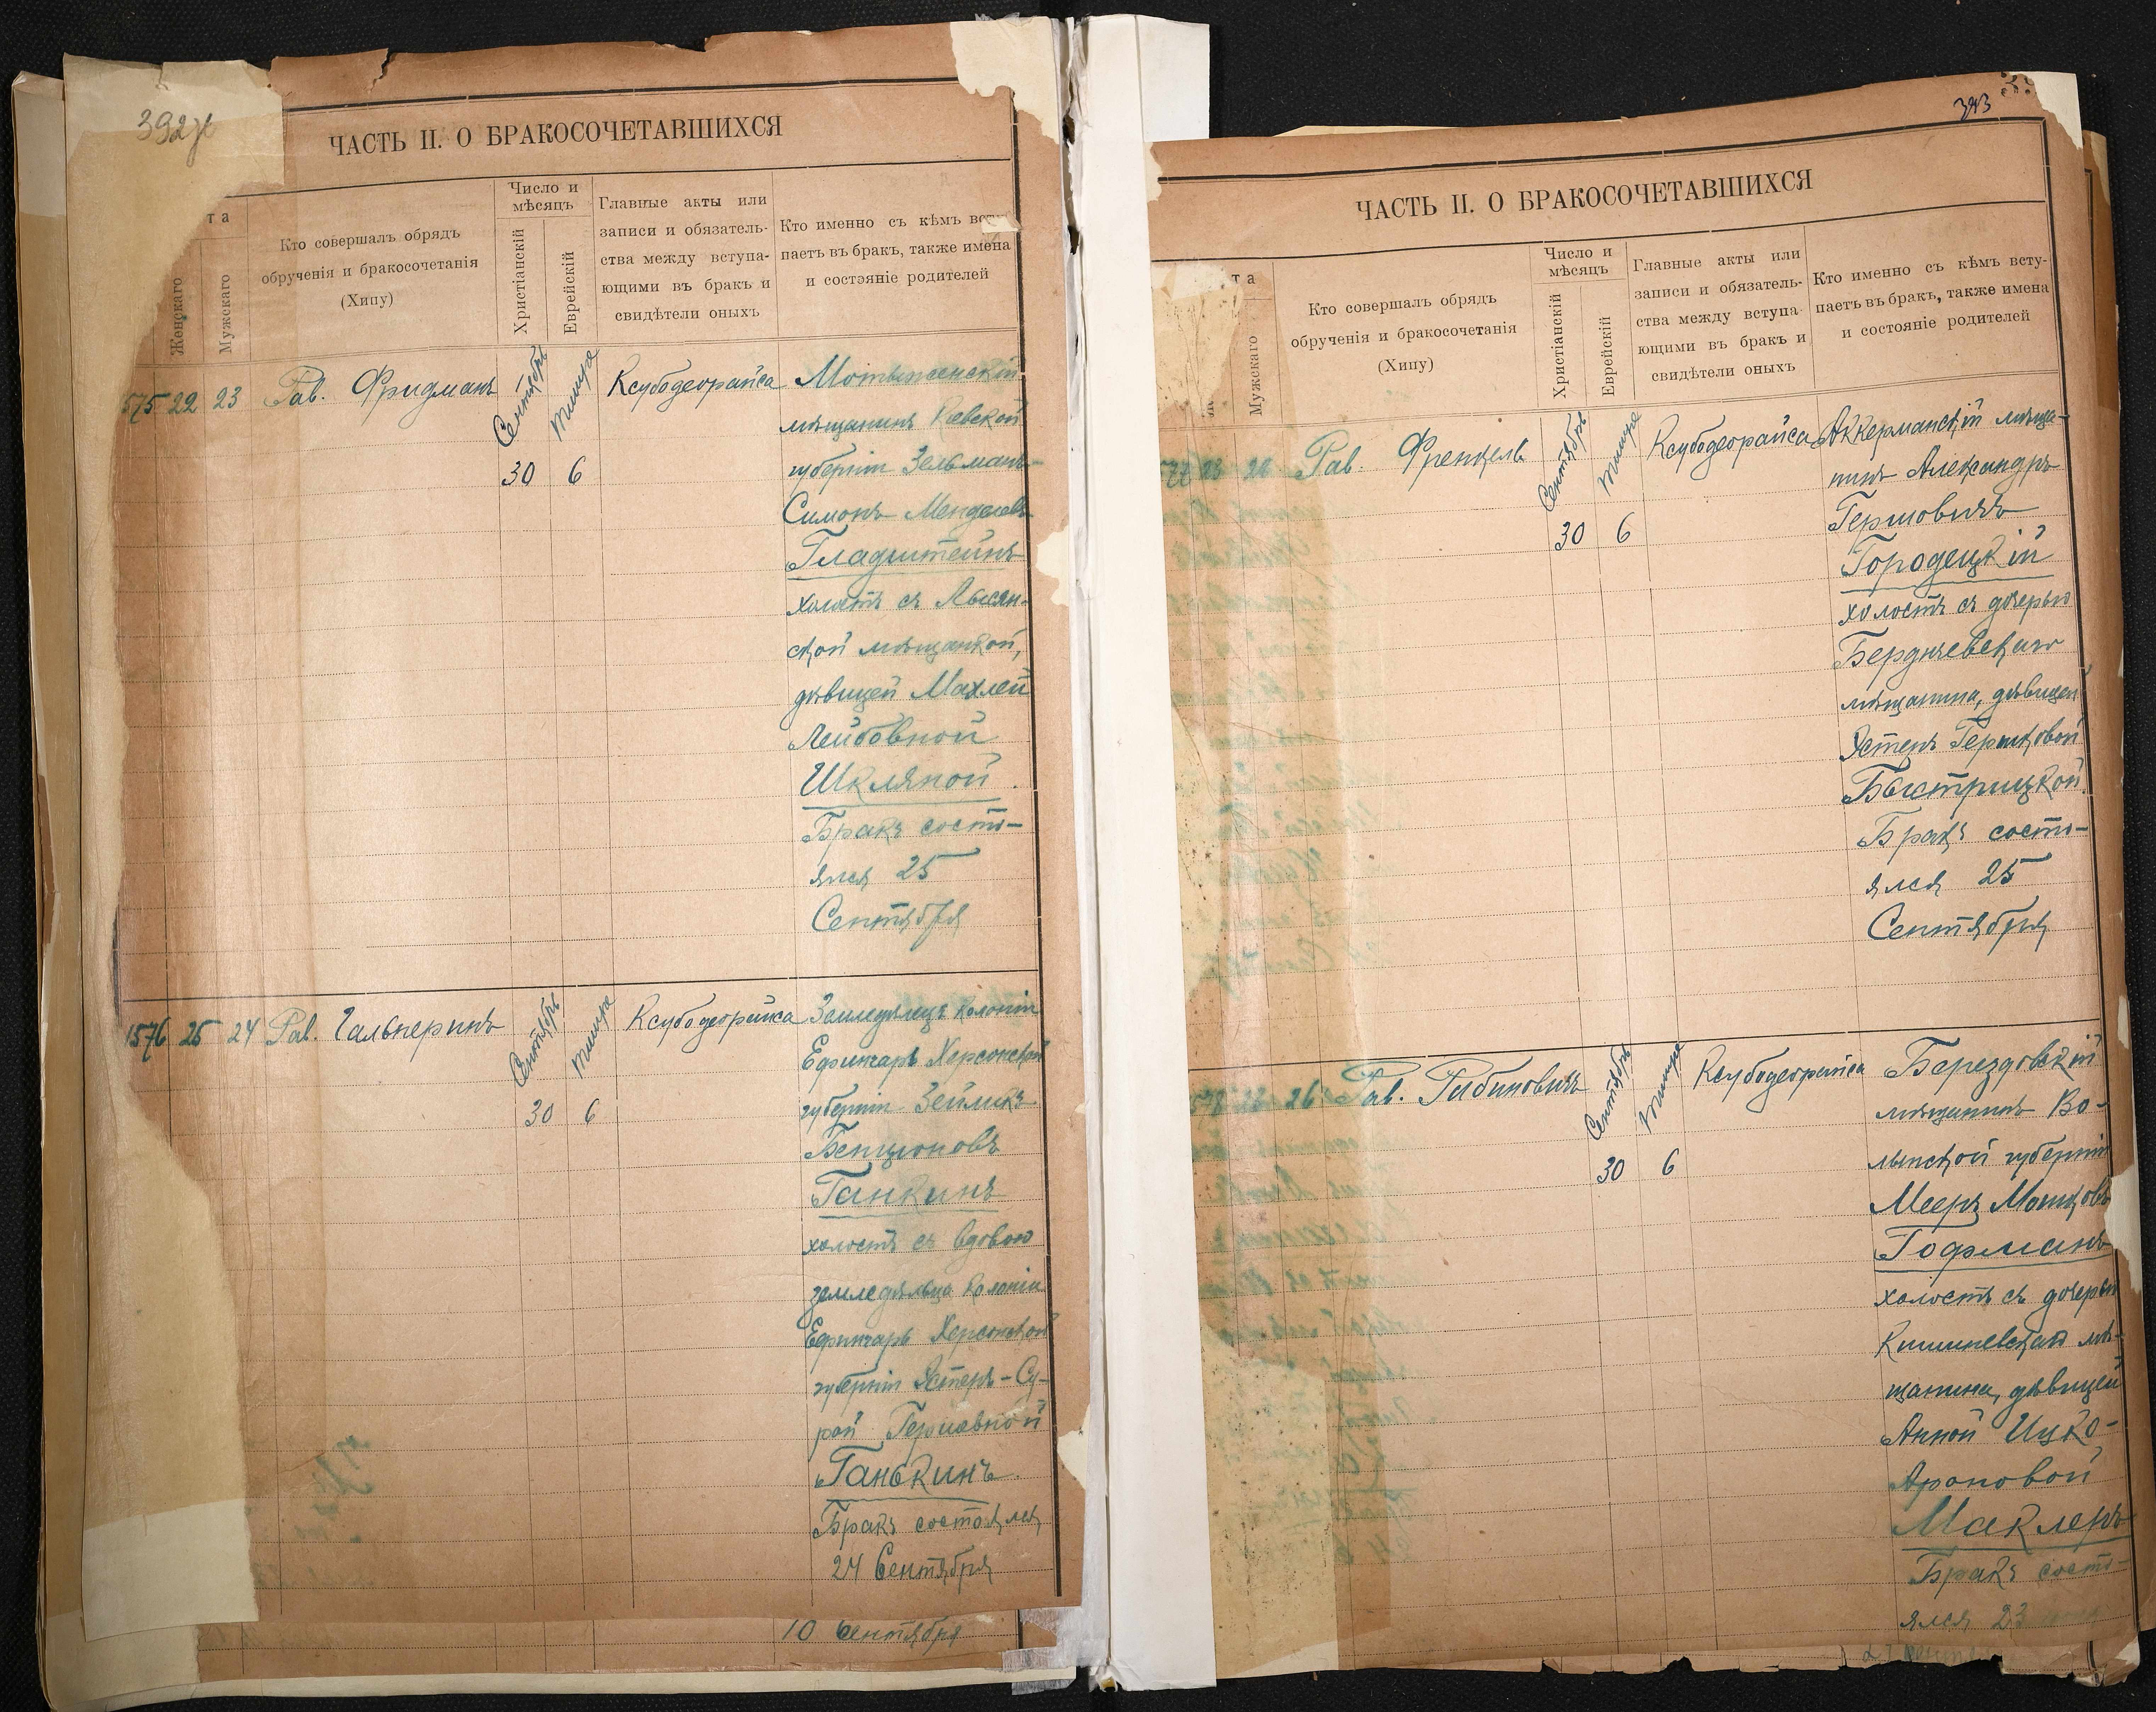 392
ЧАСТЬ II. О БРАКОСОЧЕТАВШИХСЯ
та
Женскаго
Мужскаго
Кто совершалъ обрядъ
обрученія и бракосочетанія
(Хипу)
Число и
мѣсяцъ
Христіанскій
Еврейскій
Главные акты или
записи и обязатель-
ства между вступа-
ющими въ бракъ и
свидѣтели оныхъ
Кто именно съ кѣмъ всту
паетъ въ бракъ, также имена
и состояніе родителей
575 22 23 Рав. Фридманъ
Сентябрь
Тишра
30 6
Ксубодеорайса
Мотыженскій
мѣщанинъ Кіевской
губерніи Зельманъ-
Симонъ Менделевъ
Гладштейнъ
холостъ съ Лысян-
ской мѣщанкой,
дѣвицей Махлей
Лейбовной
Шкляной.
Бракъ состо-
ялся 25
Сентября
1576 25 24 Рав. Гальперинъ
Сентябрь
Тишра
30 6
Ксубодеорайса
Земледѣлецъ колоніи
Ефингарь Херсонской
губерніи Зейликъ
Бенционовъ
Ганкинъ
холостъ съ вдовою
земледѣльца колоніи
Ефингарь Херсонской
губерніи Эстеръ-Су-
рой Гершевной
Ганькинъ.
Бракъ состоялся
24 Сентября
10 Сентября
393
ЧАСТЬ II. О БРАКОСОЧЕТАВШИХСЯ
та
Мужскаго
Кто совершалъ обрядъ
обрученія и бракосочетанія
(Хипу)
Число и
мѣсяцъ
Христіанскій
Еврейскій
Главные акты или
записи и обязатель-
ства между вступа-
ющими въ бракъ и
свидѣтели оныхъ
Кто именно съ кѣмъ всту-
паетъ въ бракъ, также имена
и состояніе родителей
577 23 Рав. Френкель
Сентябрь
Тишра
30 6
Ксубодеорайса
Аккерманскій мѣща-
нинъ Александръ
Гершовичъ
Городецкій
холостъ съ дочерью
Бердичевскаго
мѣщанина, дѣвицей
Эстеръ Гершковой
Быстрицкой.
Бракъ состо-
ялся 25
Сентября
578 26 Рав. Рабиновичъ
Сентябрь
Тишра
30 6
Ксубодеорайса
Берездовскій
мѣщанинъ Во-
лынской губерніи
Мееръ Мошковъ
Гофманъ
холостъ съ дочерью
Кишиневскаго мѣ-
щанина, дѣвицей
Анной Ицко-
Ароновой
Маклеръ
Бракъ состо-
ялся 23